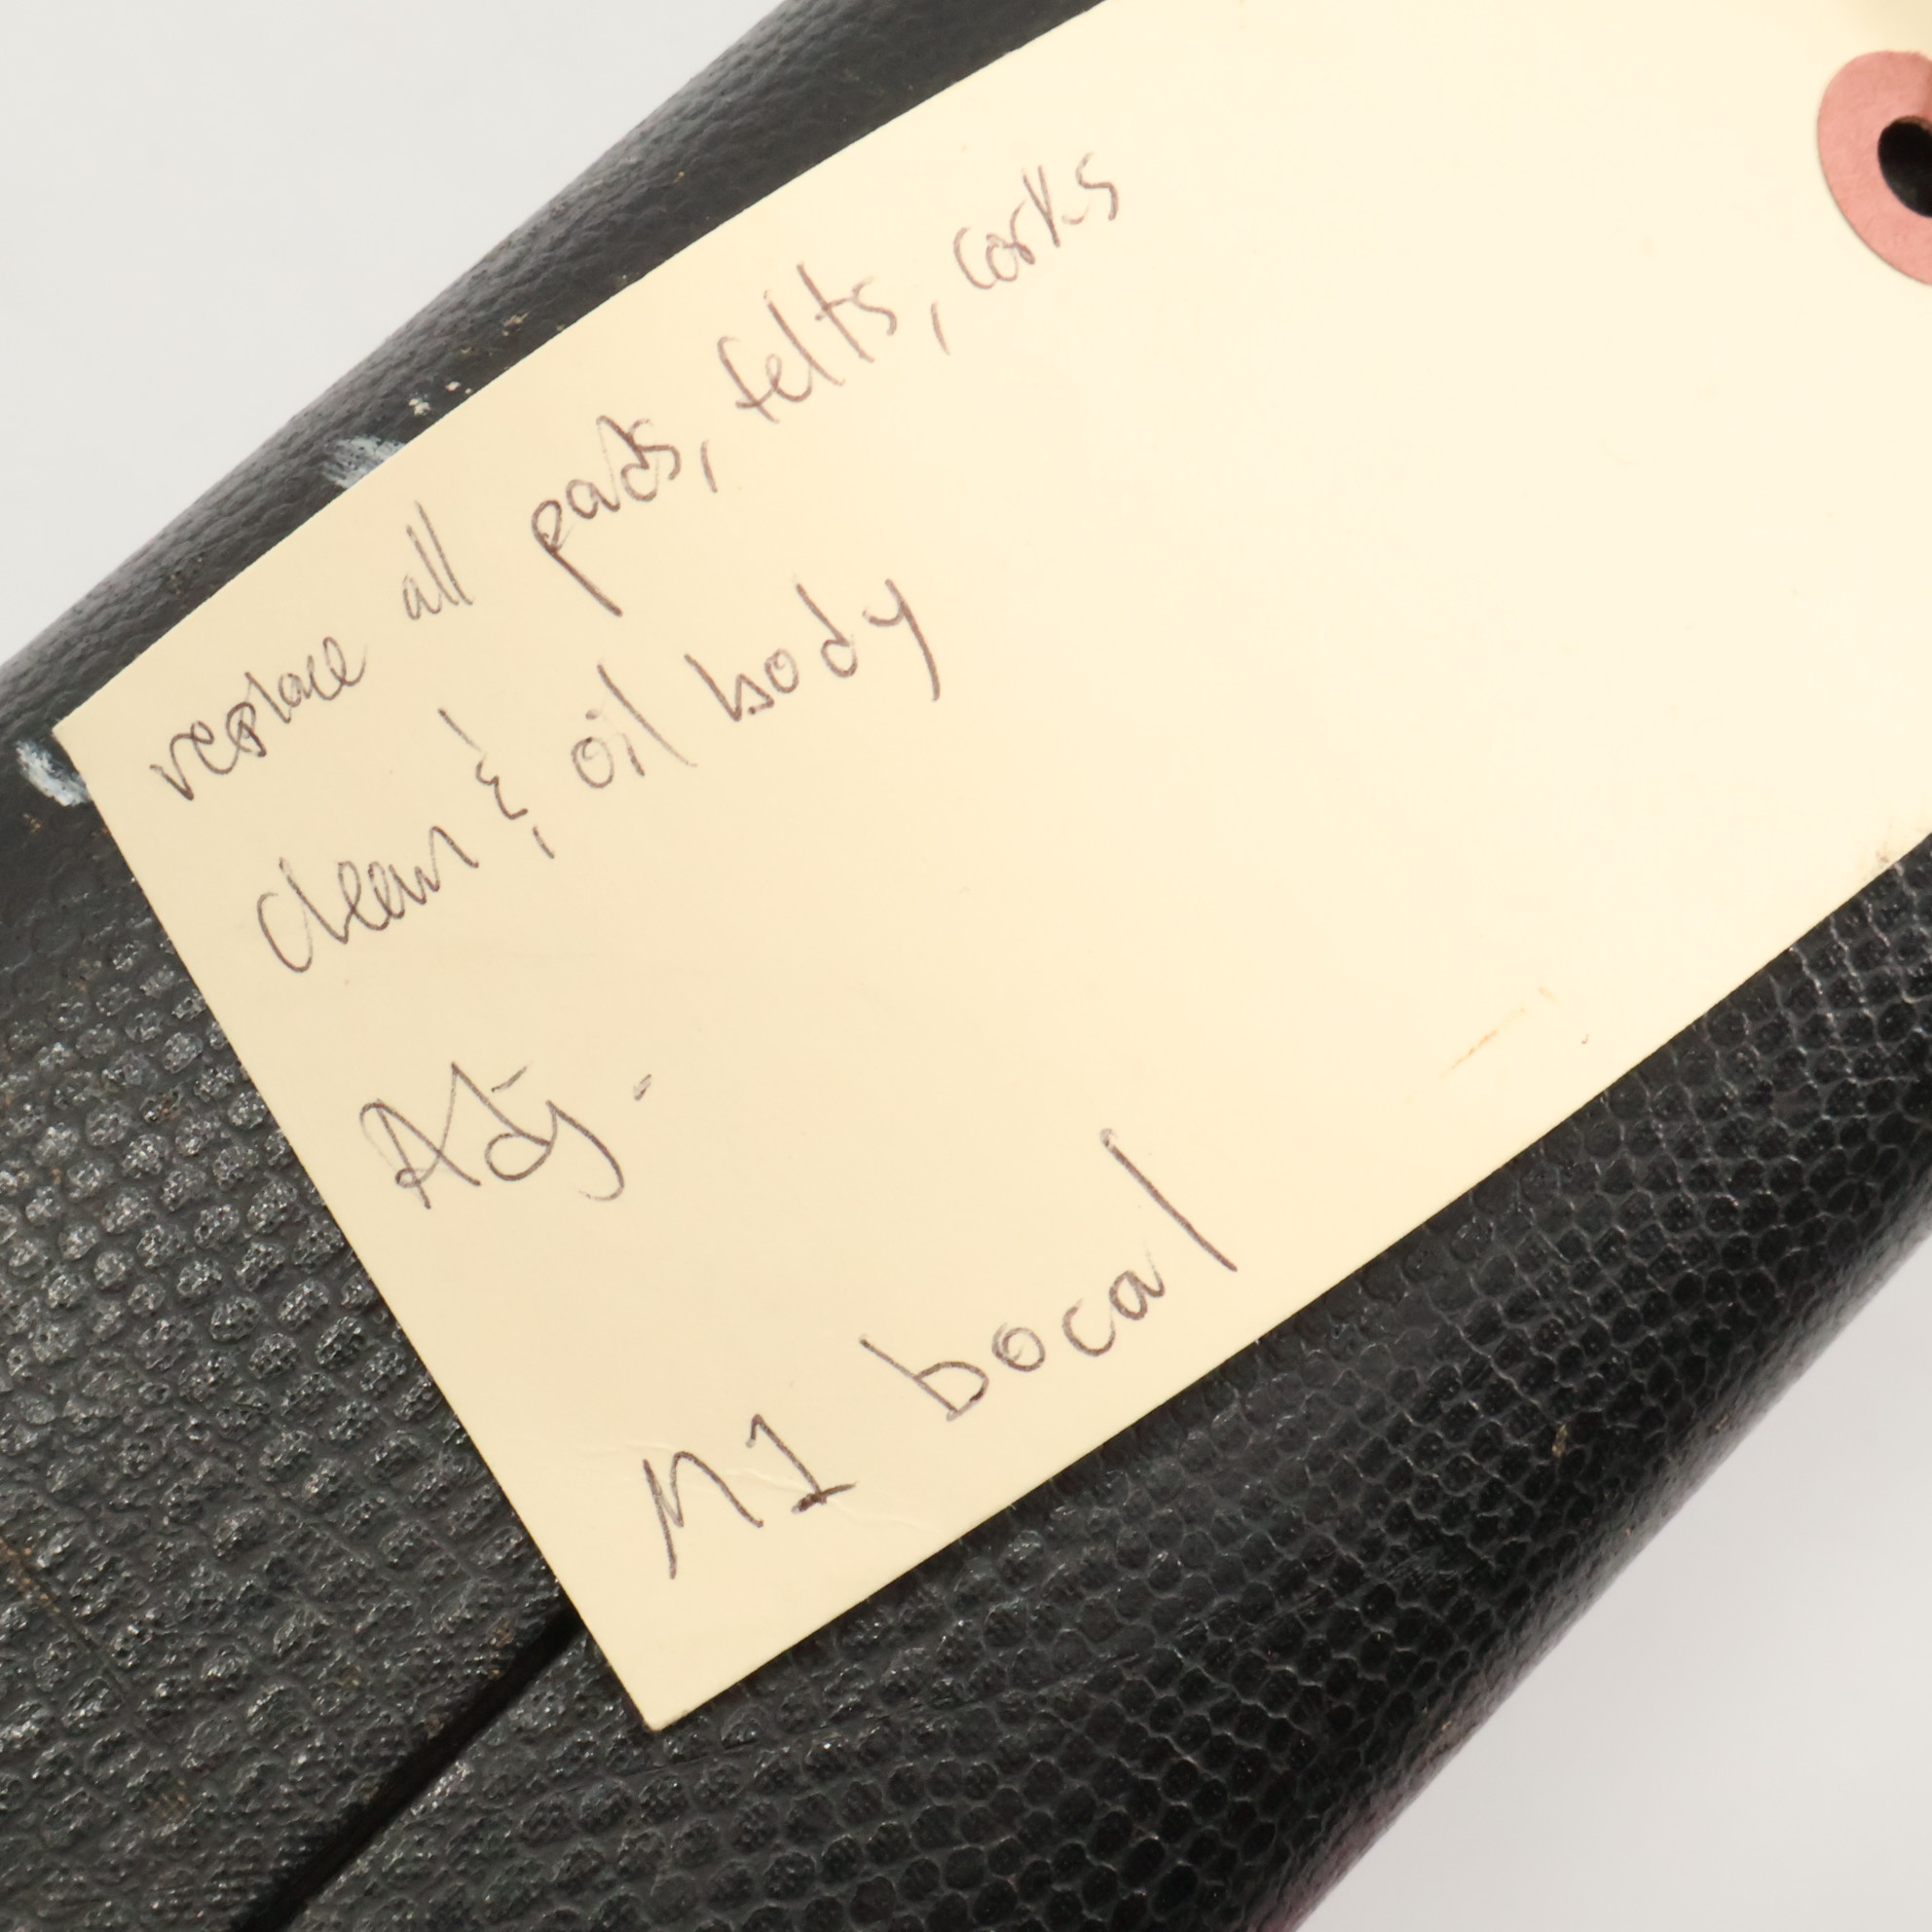 replace all pads, felts, corks
clean & oil body
Adj.
M1 bocal